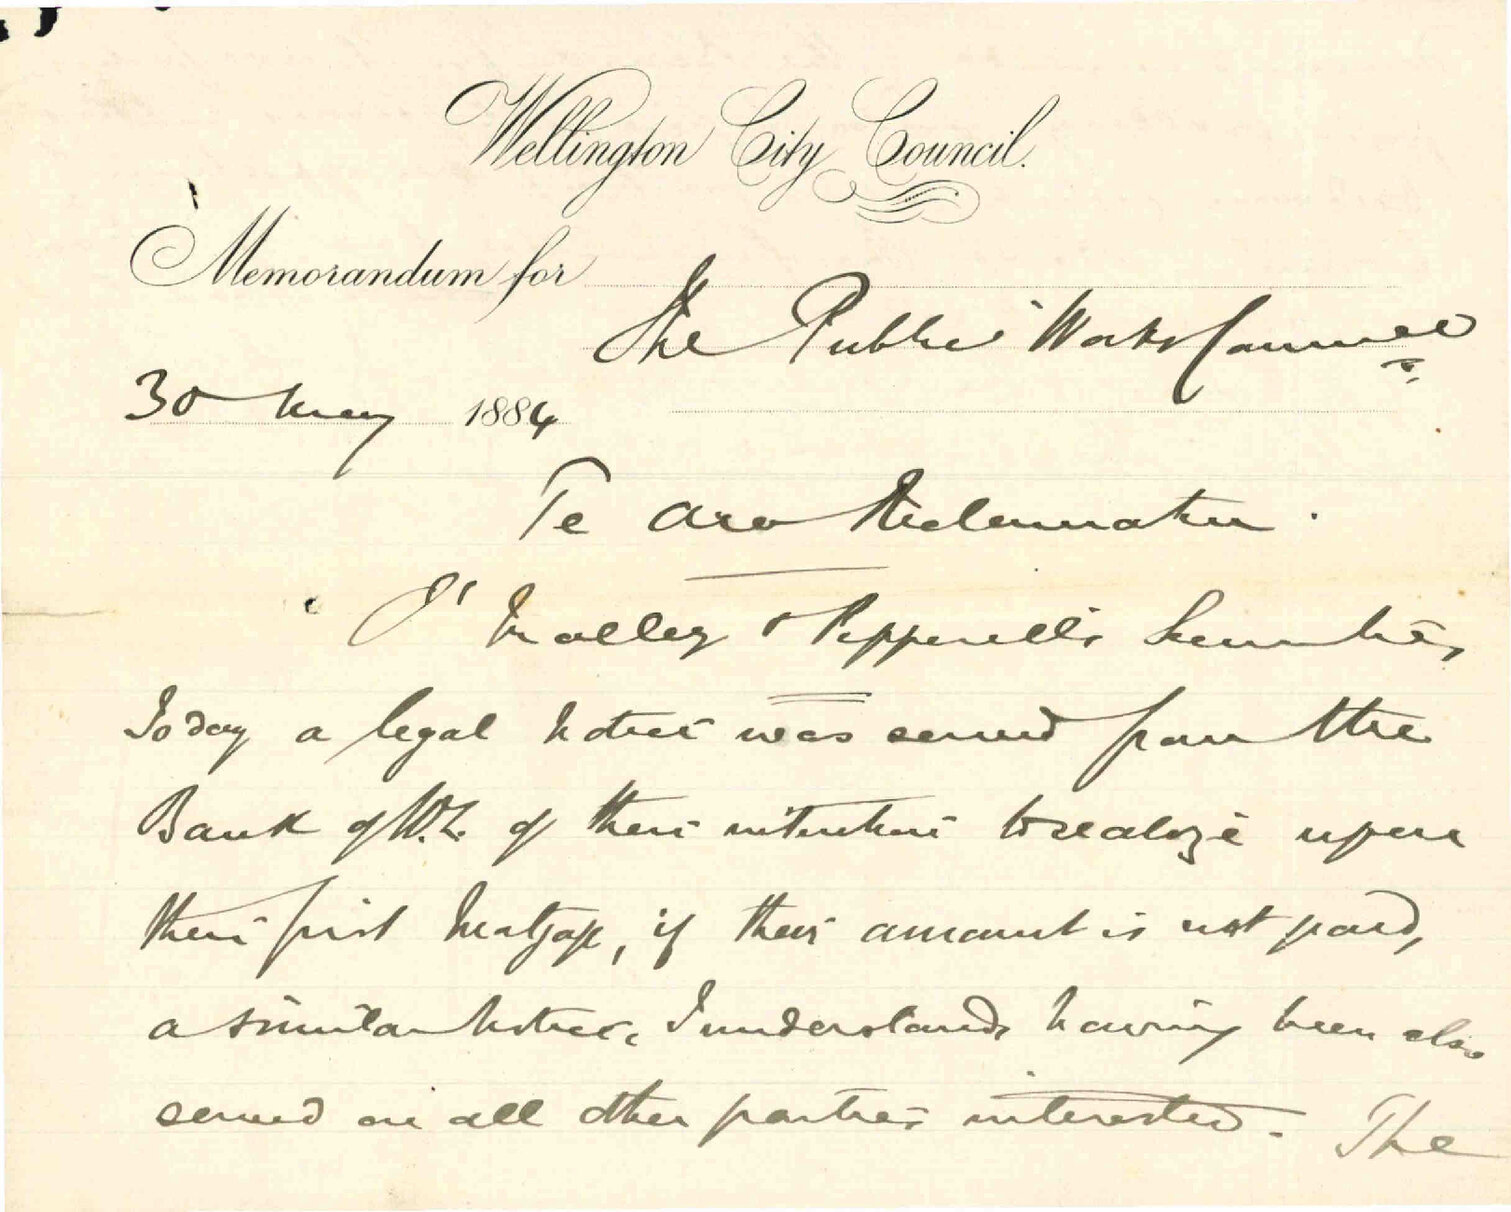 Wellington City Council.
Memorandum for
The Public Works Committee
30 May 1884
Te Aro Reclamation.
O'Malley & Pepperell's Securities,
Today a legal notice was served from the
Bank of N.Z. of their intention to realize upon
their first Mortgage, if their amount is not paid,
a similar notice, I understand, having been also
served on all other parties interested. The